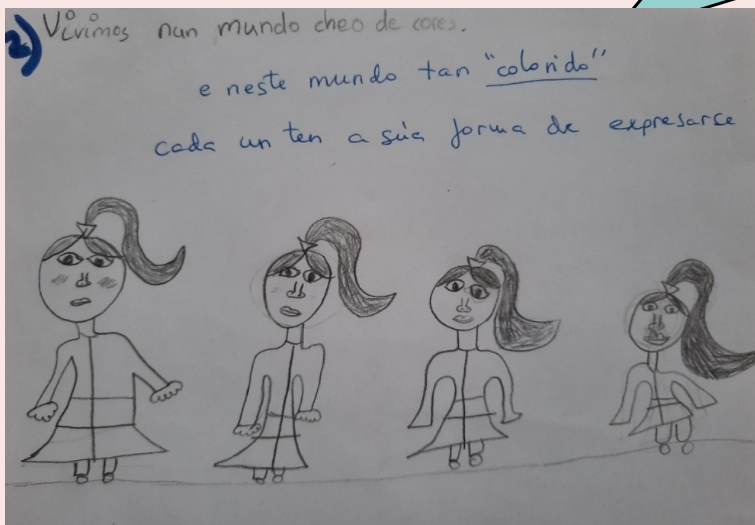 2) Vivimos nun mundo cheo de cores.
e neste mundo tan "colorido"
cada un ten a súa forma de expresarse